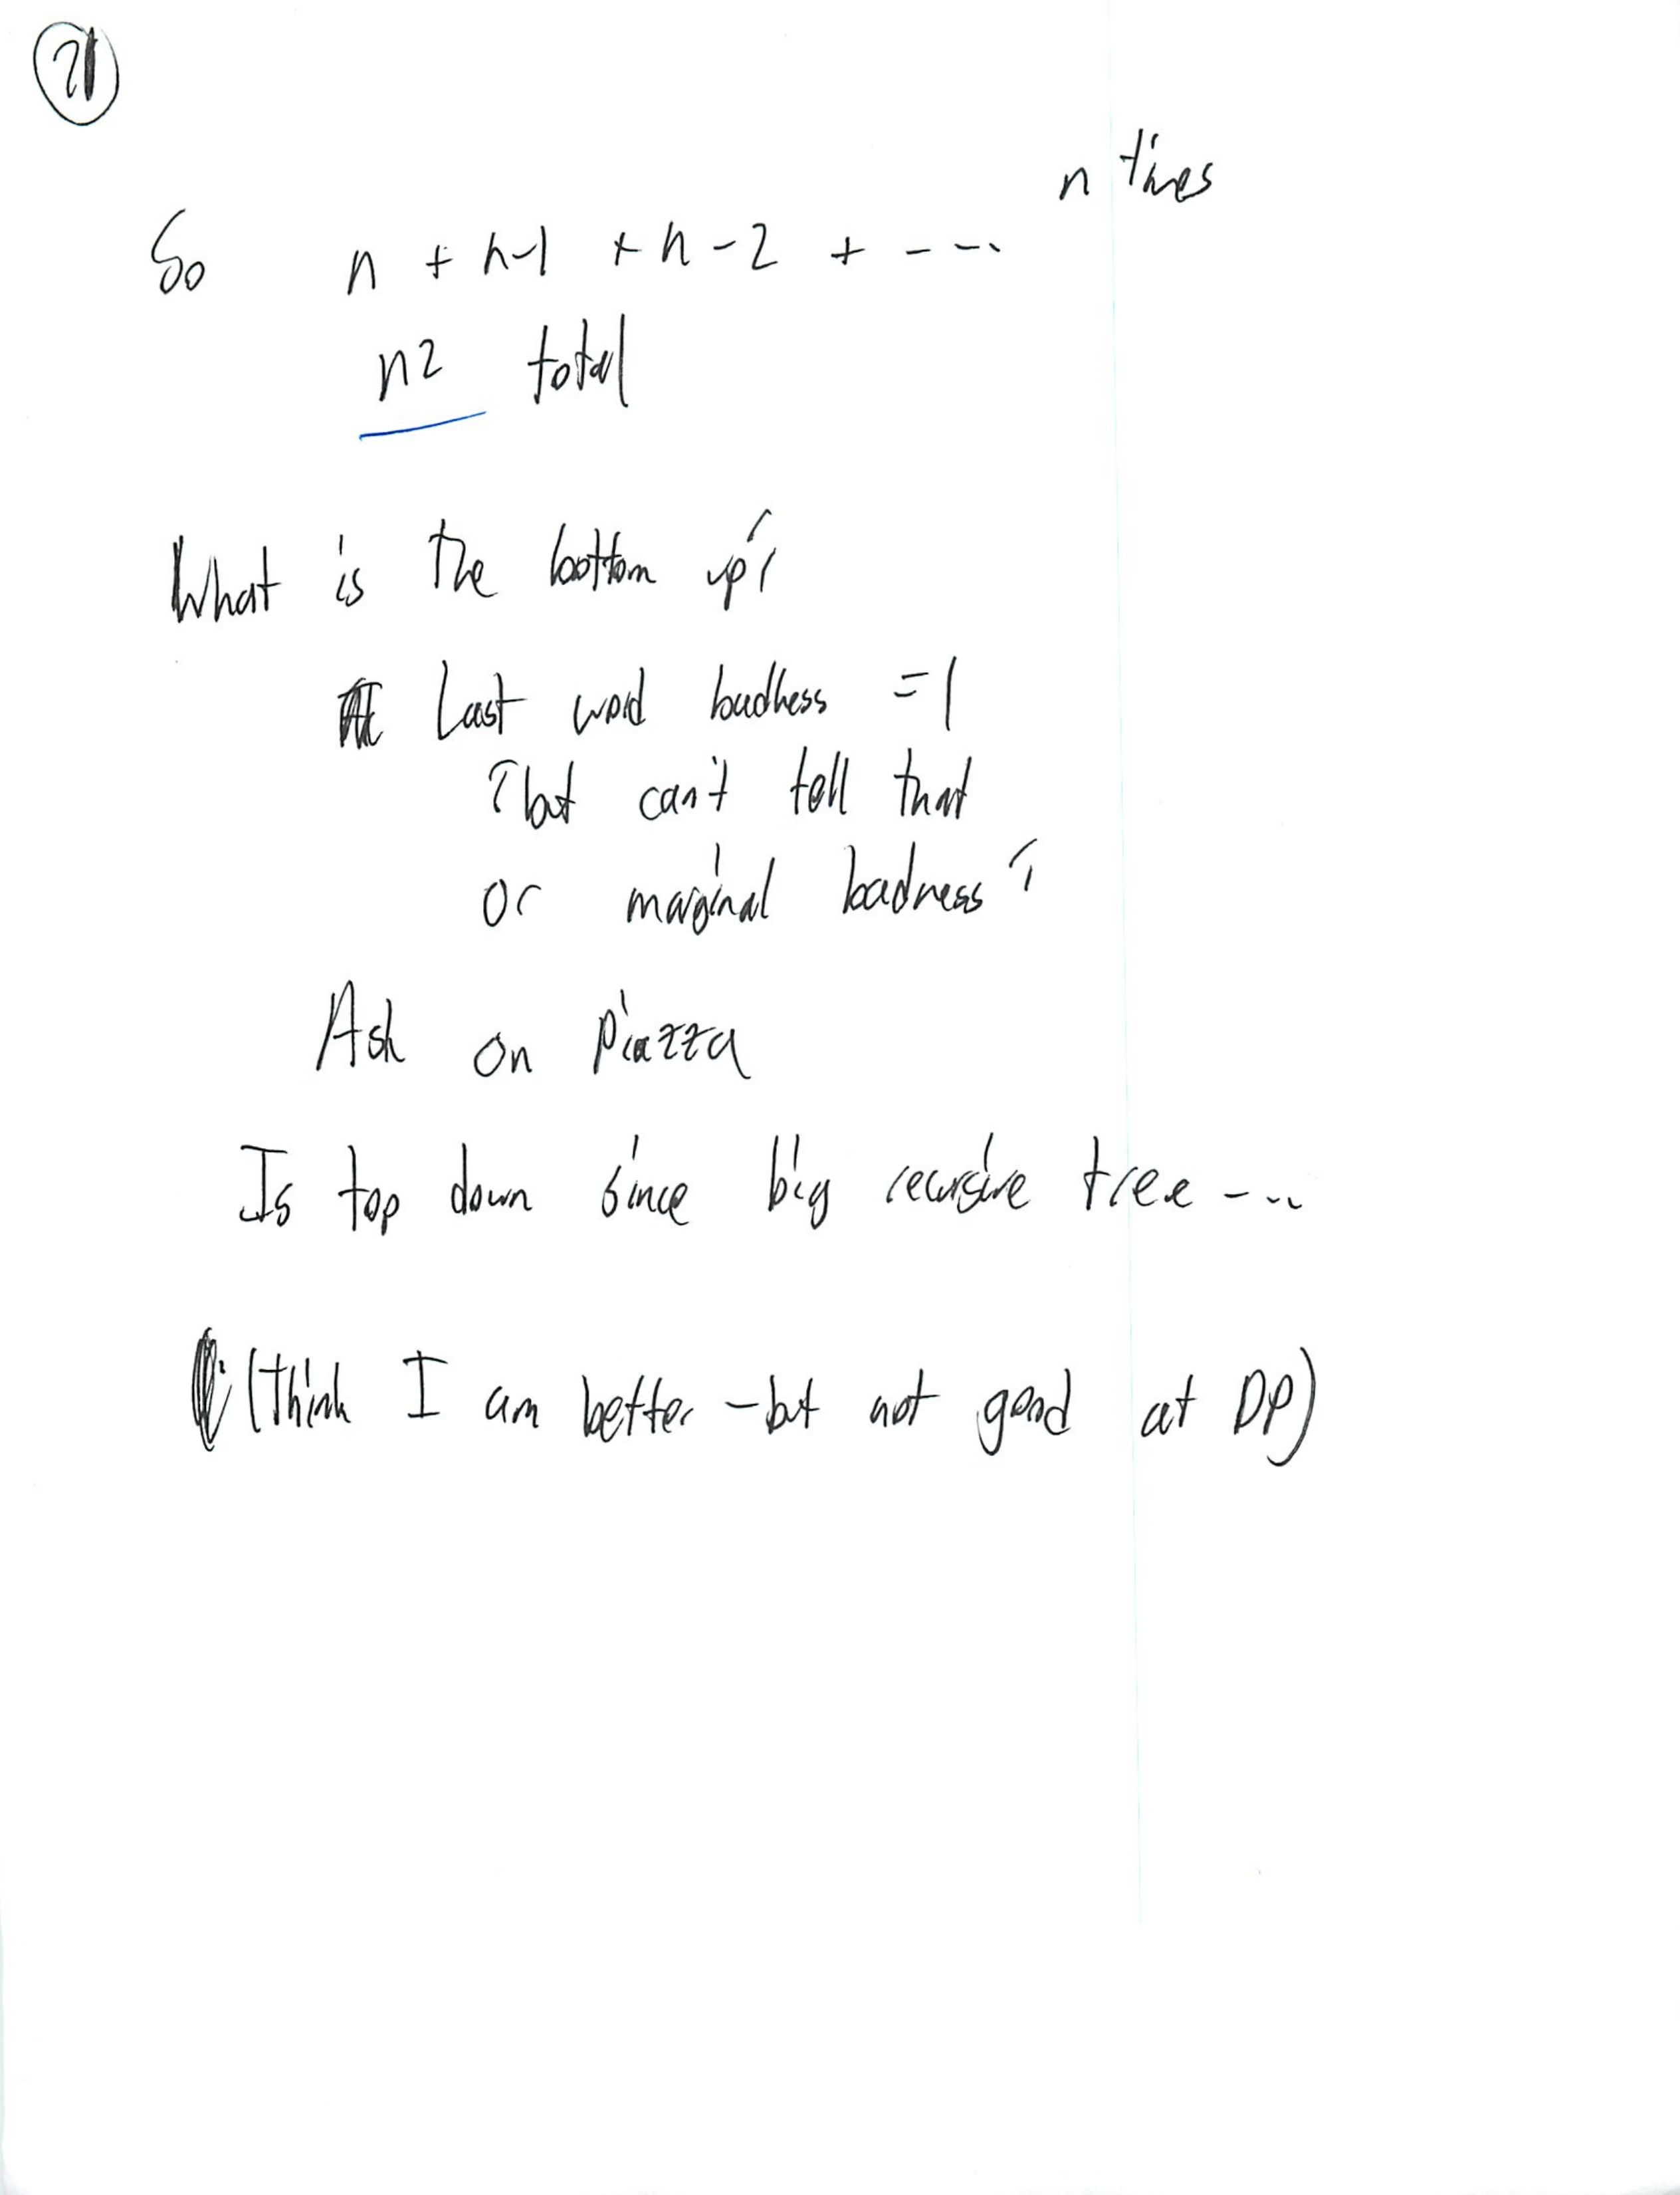 21
n times
So n + n-1 + n-2 + ----
n2 total
What is the bottom up?
Last word badness = 1
but can't tell that
or marginal badness?
Ask on Piazza
Is top down since big recursive tree ---
(think I am better - but not good at DP)